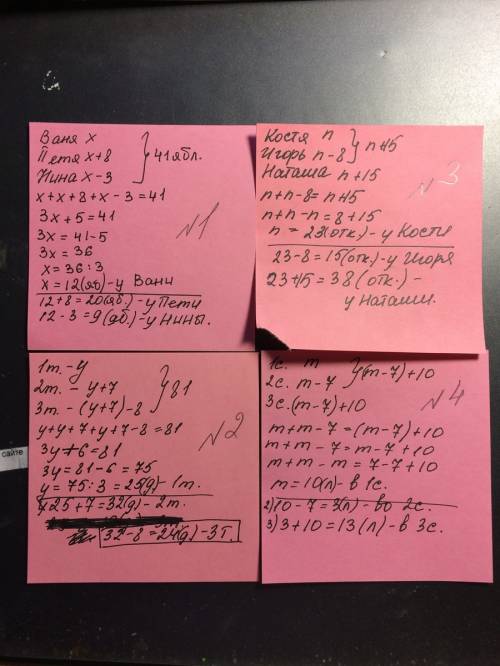 Ваня x
Петя x+8 } 41 ябл.
Нина x-3
x+x+8+x-3=41
3x+5=41
3x=41-5
3x=36
x=36:3
x=12(яб)-у Вани
12+8=20(яб.)-у Пети
12-3=9(яб.)-у Нины.
N1
Костя n
Игорь n-8 } n+15
Наташа n+15
n+n-8=n+15
n+n-n=8+15
n=23(отк.)-у Кости
23-8=15(отк.)-у Игоря
23+15=38(отк.)-
у Наташи.
N3
1т.-y
2т.-y+7 } 81
3т-(y+7)-8
y+y+7+y+7-8=81
3y+6=81
3y=81-6=75
y=75:3=25(д)-1т.
25+7=32(д)-2т.
32-8=24(д)-3т.
N2
1с. m
2с. m-7 } (m-7)+10
3с.(m-7)+10
m+m-7=(m-7)+10
m+m-7=m-7+10
m+m-m=7-7+10
m=10(л)-в 1с.
2)10-7=3(л)-во 2с.
3)3+10=13(л)-в 3с.
N4
сайте